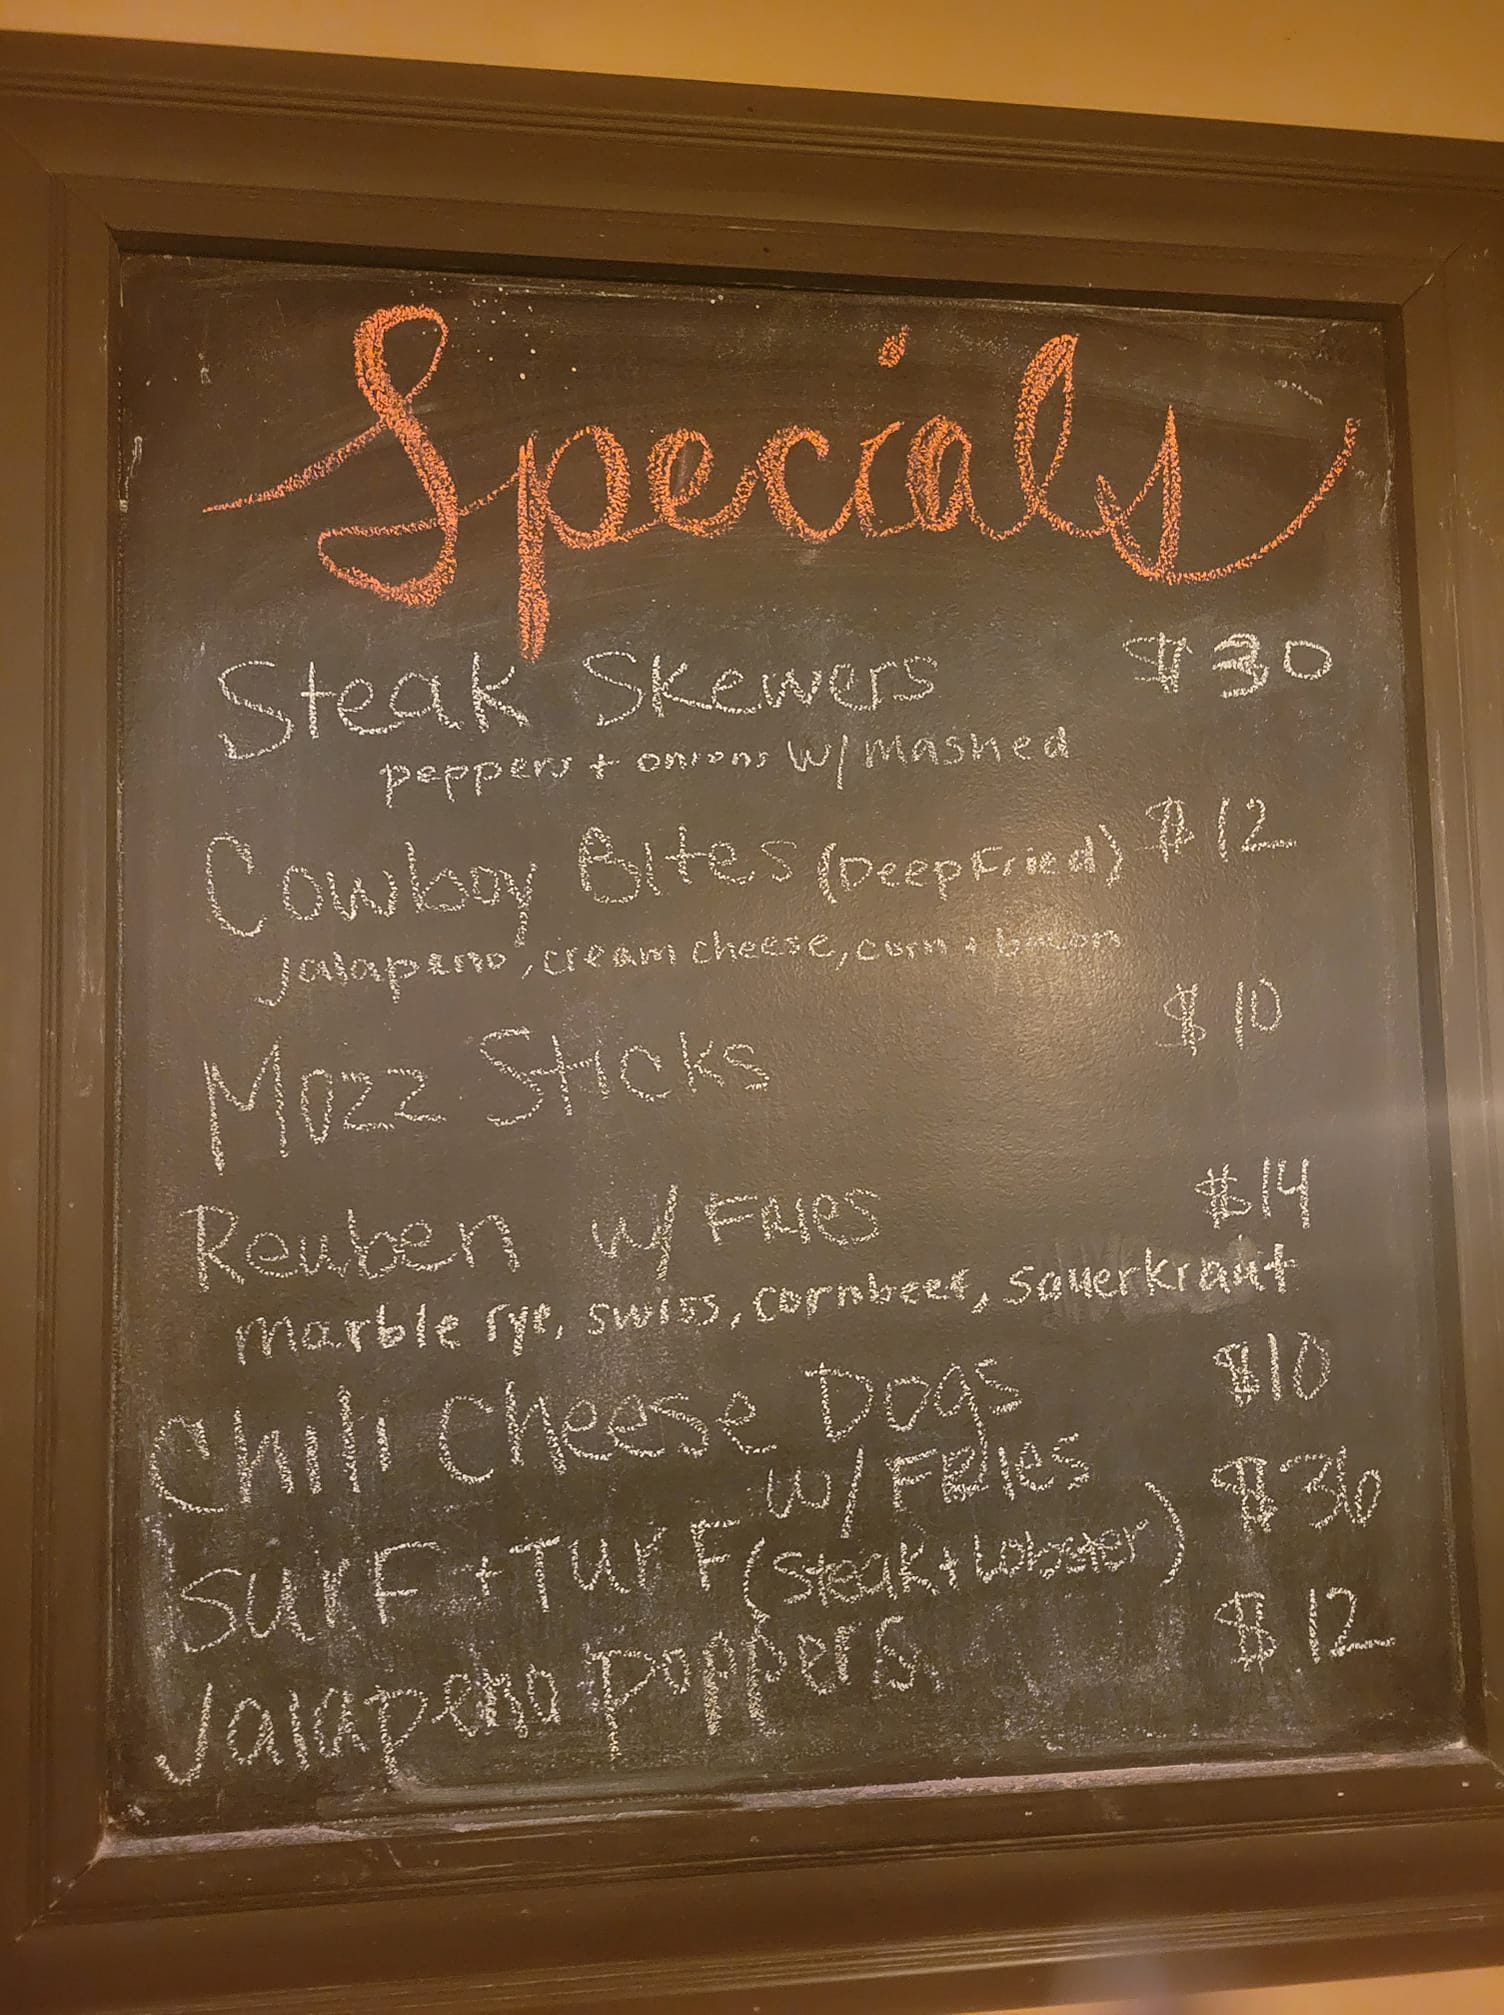 Specials
Steak Skewers $30
peppers + onions w/ mashed
Cowboy Bites (Deep Fried) $12
jalapeno, cream cheese, corn + bacon
Mozz Sticks $10
Reuben w/ Fries $14
marble rye, swiss, cornbeef, sauerkraut
Chili Cheese Dogs $10
w/ Fries
Surf + Turf (Steak + Lobster) $36
Jalapeno Poppers $12